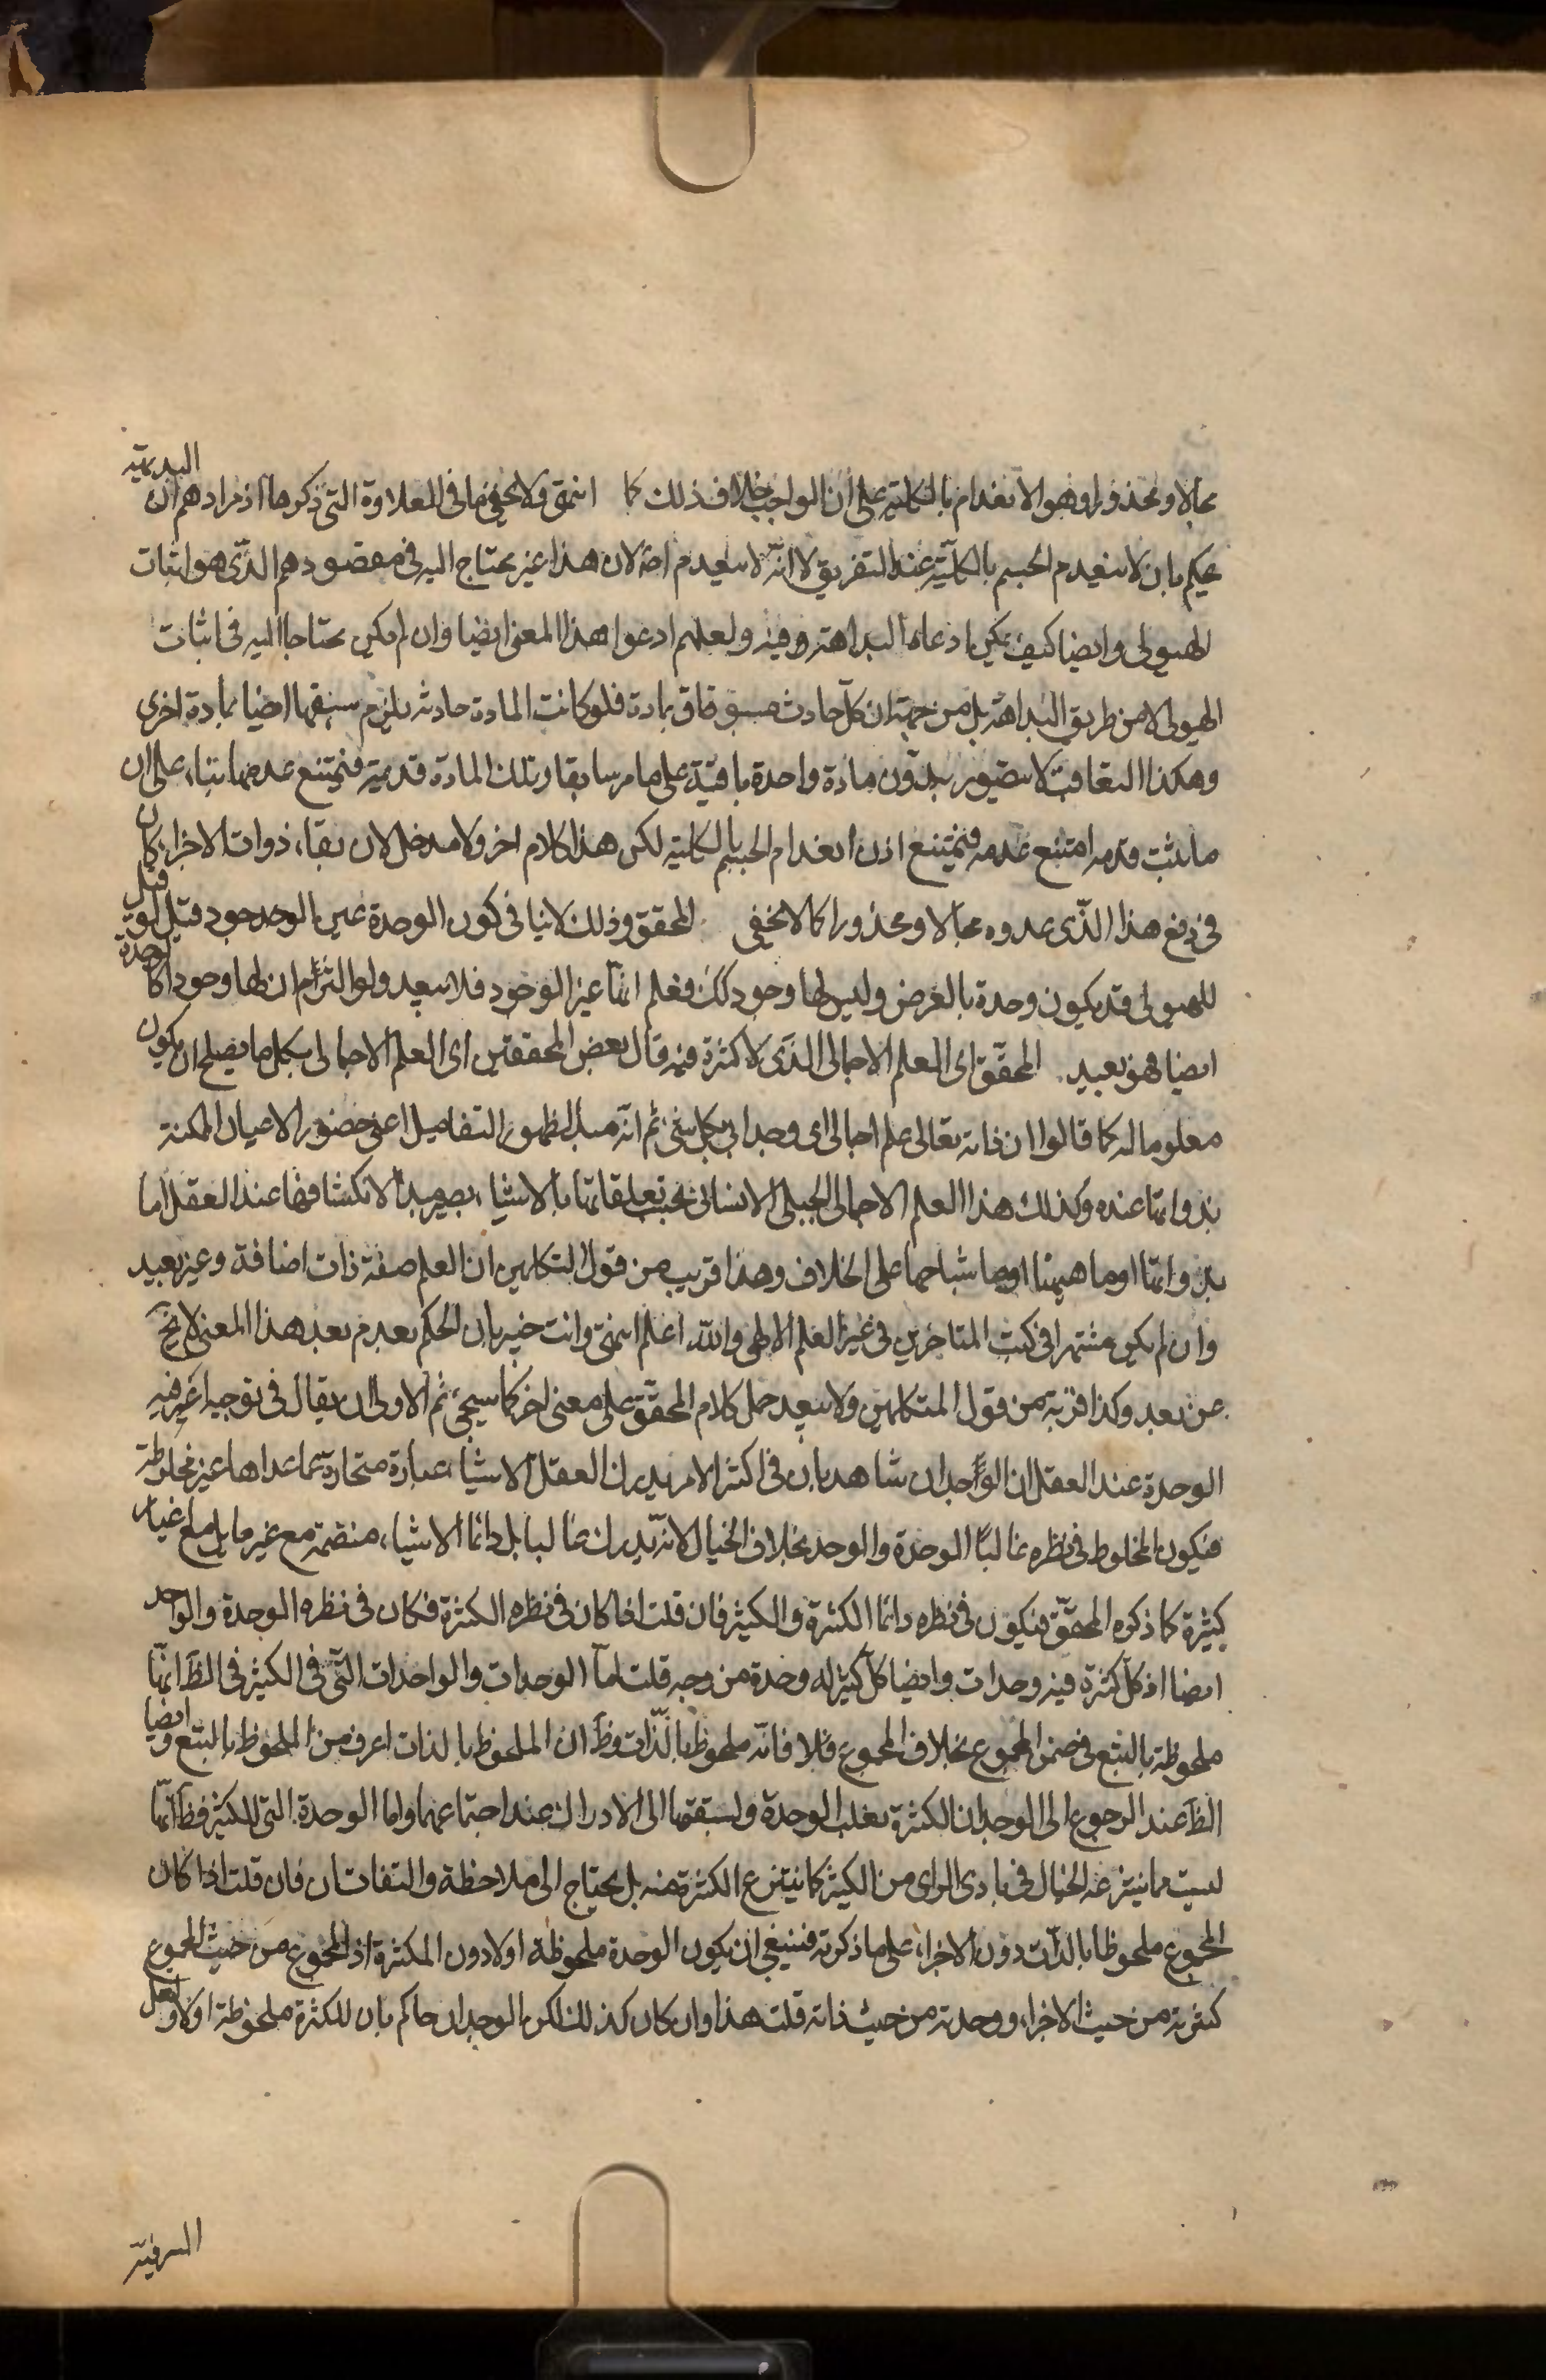 محالا ومحذورا وهو الانعدام بالكلية على ان الواجب خلاف ذلك كما انتهى ولا يخفى ما فى العلاوة التى ذكرها اذ مرادهم ان البديهة
يحكم بان لا ينعدم الجسم بالكلية عند التفريق لا انه لا ينعدم اصلا لان هذا غير محتاج اليه فى مقصودهم الذى هو اثبات
الهيولى وايضا كيف يمكن ادعاء البداهة فيه ولعلهم ادعوا هذا المعنى ايضا وان لم يكن محتاجا اليه فى اثبات
الهيولى لا من طريق البداهة بل من جهة ان كل حادث مسبوق بمادة فلو كانت المادة حادثه يلزم سبقها ايضا بمادة اخرى
وهكذا التعاقب لا يتصور بدون مادة واحدة باقية على ما مر سابقا وتلك المادة قديمة فيمتنع عدمها بناء على ان
ما ثبت قدمه امتنع عدمه فيمتنع اذن انعدام الجسم بالكلية لكن هذا كلام اخر ولا مدخل لان بقاء ذوات الاجزاء كان
فى دفع هذا الذى عدوه محالا ومحذورا كما لا يخفى المحقق وذلك لا ينافى كون الوحدة عين الوجود قيل لو قيل
للهيولى قد يكون وحدة بالعرض وليس لها وجود كك فعلم انها غير الوجود فلا يبعد ولو التزام ان لها وجودا كالوحدة
ايضا فهو بعيد المحقق اى العلم الاجمالى الذى لا كثرة فيه قال بعض المحققين اى العلم الاجمالى بكل ما يصلح ان يكون
معلوما له كما قالوا ان ذاته تعالى علم اجمالى اى وجدانى بكل شئ ثم انه مبدا لظهور التفاصيل اعنى حضور الاعيان الممكنة
بذواتها عنده وكذلك هذا العلم الاجمالى الجبلى الانسانى بحسب تعلقاتها بالاشياء يصير مبدأ لانكشافها عند العقل اما
بذواتها او ماهيتها او باشباحها على الخلاف وهذا قريب من قول المتكلمين ان العلم صفة ذات اضافة وغير بعيد
وان لم يكن مشتهرا فى كتب المتاخرين فى غير العلم الالهى والله اعلم انتهى وانت خبير بان الحكم بعدم بعد هذا المعنى لا يخ
عن بعد وكذا قربه من قول المتكلمين ولا يبعد حمل كلام المحقق على معنى اخر كما سيجئ ثم الاولى ان يقال فى توجيه اعرفية
الوحدة عند العقل ان الوجدان شاهد بان فى اكثر الامر يدرك العقل الاشياء عبارة منحازة عما عداها غير مخلوطة
فيكون المخلوط فى نظره غالبا الوحدة والوحد بخلاف الخيال لانه يدرك غالبا بل دائما الاشياء منضمة مع غيرها بل مع غيار
كثيرة كما ذكره المحقق فيكون فى نظره دائما الكثرة والكثير فان قلت اذا كان فى نظره الكثرة فكان فى نظره الوحدة والواحد
ايضا اذ كل كثرة فيه وحدات وايضا كل كثير له وحدة من وجه قلت اما الوحدات والواحدات التى فى الكثير فى الظ انها
ملحوظة بالتبع فى ضمن المجموع بخلاف المجموع فلا فانه ملحوظ بالذات وظ ان الملحوظ بالذات اعرف من الملحوظ بالتبع وايضا
الظ عند الرجوع الى الوجدان الكثرة تغلب الوحدة ولسبقها الى الادراك عند اجتماعهما واما الوحدة التى للكثير فظ انها
ليست مما ينتزعه الخيال فى بادى الراى من الكثير كما ينتزع الكثرة منه بل يحتاج الى ملاحظة والتفات ثان فان قلت اذا كان
المجموع ملحوظا بالذات دون الاجزاء على ما ذكرته فينبغى ان يكون الوحدة ملحوظة اولا دون الكثرة اذ المجموع من حيث المجموع
كثرته من حيث الاجزاء ووحدته من حيث ذاته قلت هذا وان كان كذلك لكن الوجدان حاكم بان للكثرة ملحوظة اولا ولعل
السرفيه